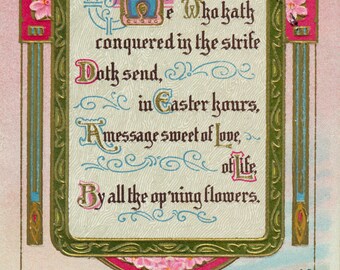 He Who hath
conquered in the strife
Doth send,
in Easter hours,
A message sweet of Love,
of Life,
By all the op'ning flowers.